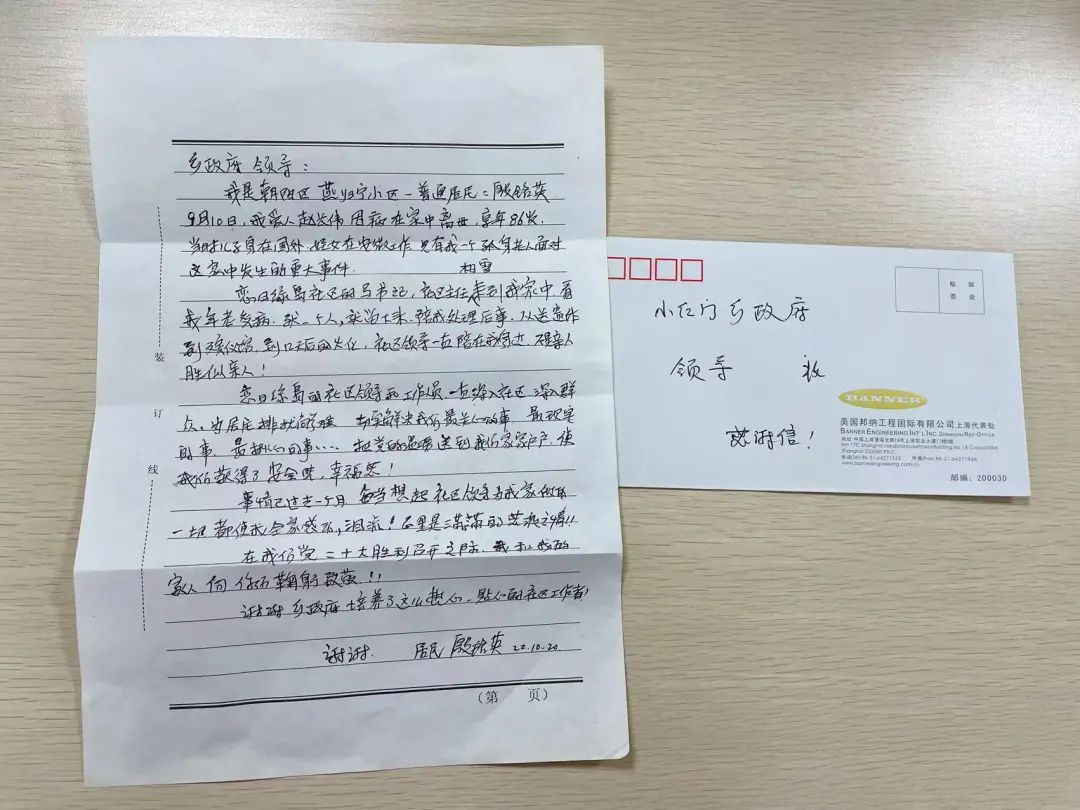 乡政府 领导：
我是朝阳区 燕归宁小区一普通居民：殷铭英
9月10日，我爱人赵兴伟因病在家中离世，享年86岁。
当时儿子身在国外，侄女在安徽工作 只有我一个孤身老人面对
这家中发生的重大事件.
相雪
恋日绿岛社区的马书记，社区主任来到我家中，看
我年老多病，就一个人，就留下来 陪我处理后事，从送
到殡仪馆，到 后的火化，社区领导一直陪在我身边，不是亲人
胜似亲人！
恋日绿岛的社区领导和工作人员 一直深入社区 深入群
众，为居民排忧解难 切实解决我们最关心的事 最现实
的事 最揪心的事…… 把党的温暖送到我们家家户户，使
我们获得了安全感，幸福感！
事情已过去一个月 每当想起社区领导为我家做的
一切 都使我全家感动，泪流！
在我们党二十大胜利召开之际，我和我的
家人 向你们鞠躬致敬！！
谢谢乡政府培养了这么 的社区工作者
谢谢. 居民 殷铭英 22.10.20.
（第 页）
装
订
线
贴 邮
票 处
小红门乡政府
领导 收
感谢信！
BANNER
美国邦纳工程国际有限公司上海代表处
BANNER ENGINEERING INT'L INC. SHANGHAI REP. OFFICE
Shanghai 200030 P.R.C.
电话/Tel:86-21-64271933 传真/Fax:86-21-64271936
www.bannerengineering.com.cn
邮编：200030